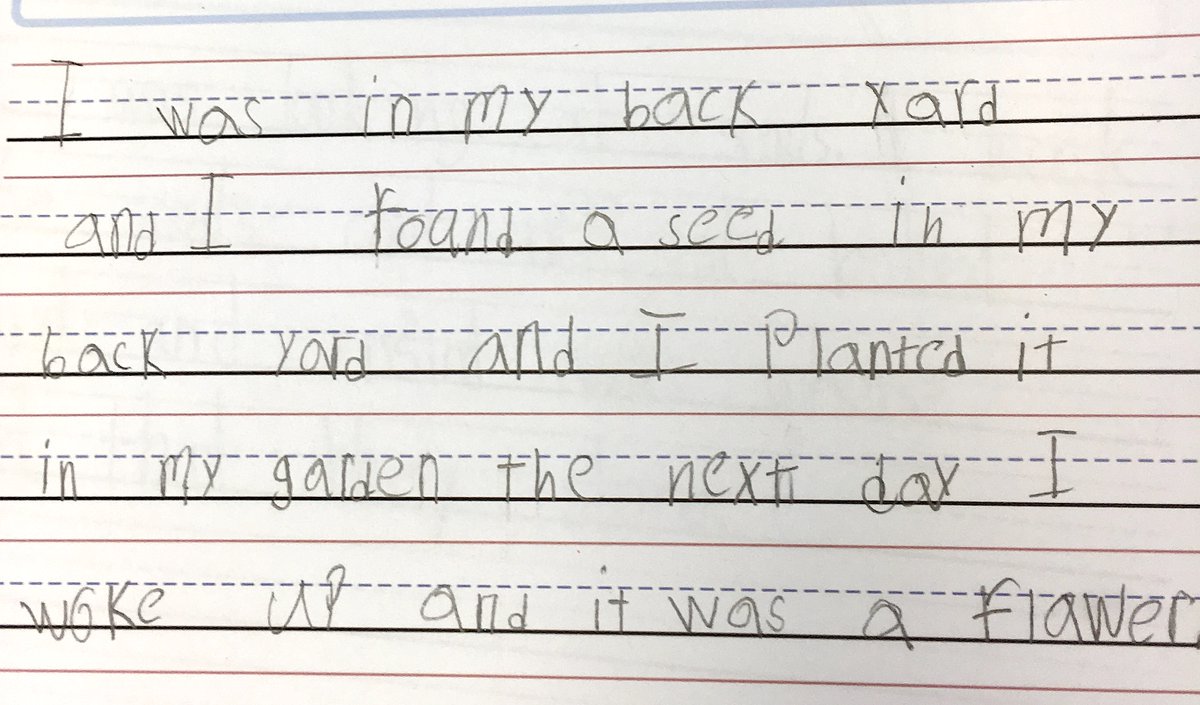 I was in my back yard
and I foand a seed in my
back yard and I Planted it
in my garden the next day I
woke up and it was a flawer